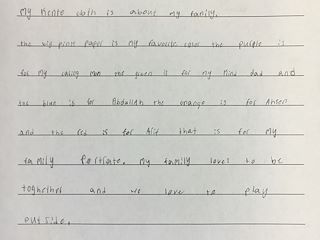 My Kente cloth is about my family.
the pink paper is my favorite color the purple is
for my caring mom the green is for my kind dad and
the blue is for Abdullah the orange is for Ahsen
and the red is for Arif that is for my
family Portrate. my family loves to be
toghether and we love to play
outside.